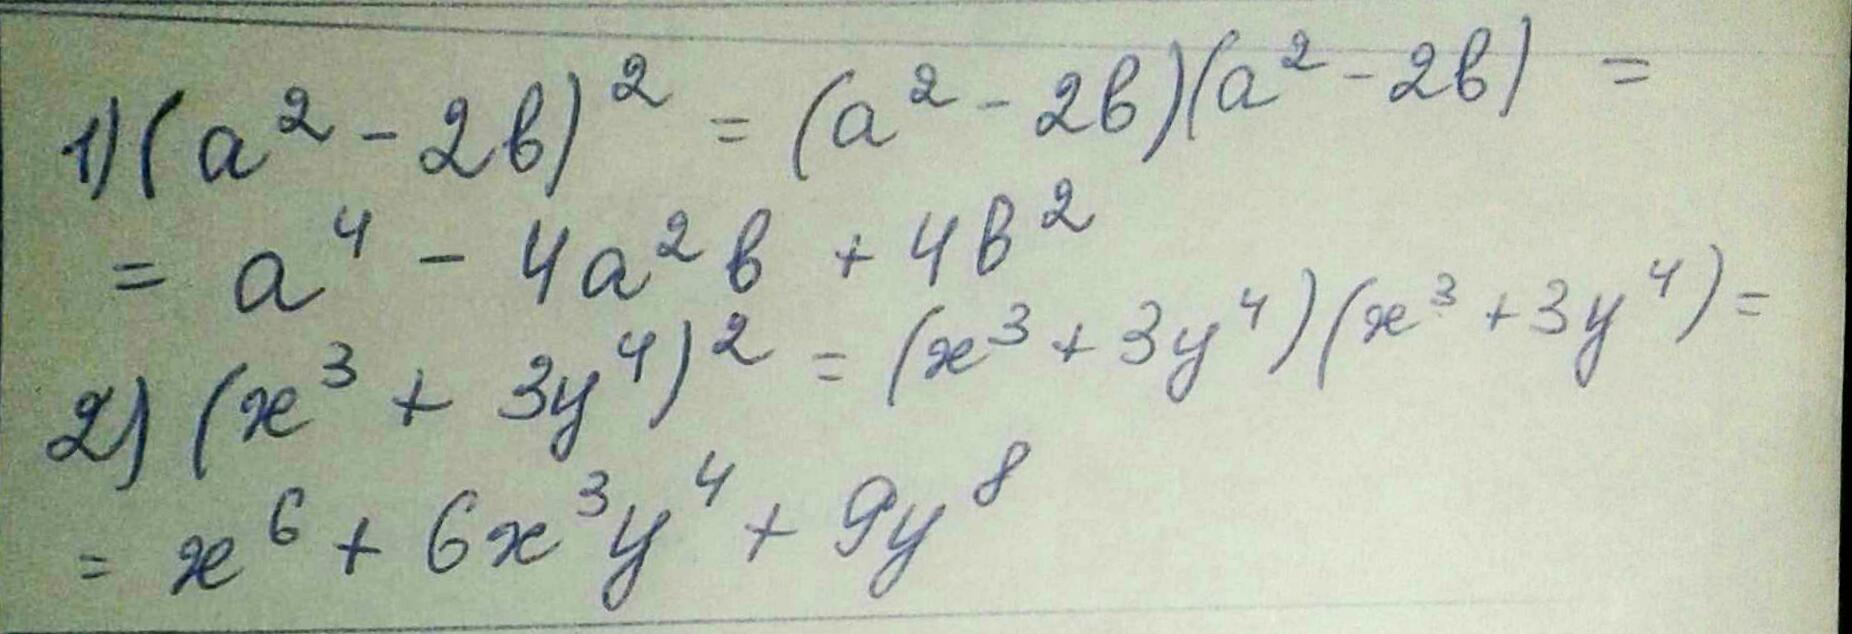 1) (a² - 2b)² = (a² - 2b)(a² - 2b) =
= a⁴ - 4a²b + 4b²
2) (x³ + 3y⁴)² = (x³ + 3y⁴)(x³ + 3y⁴) =
= x⁶ + 6x³y⁴ + 9y⁸